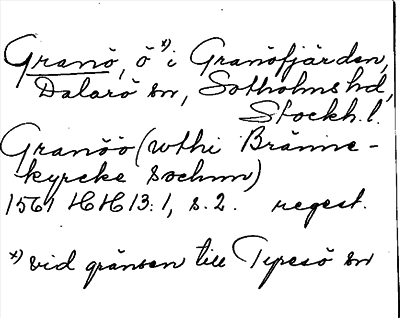 Granö, ö *) i Granöfjärden,
Dalarö sn, Sotholms hd,
Stockh. l.
Granöö (wthi Bränne-
kyrcke sochnn)
1561 HH 13:1, s. 2. regest.
*) vid gränsen till Tyresö sn